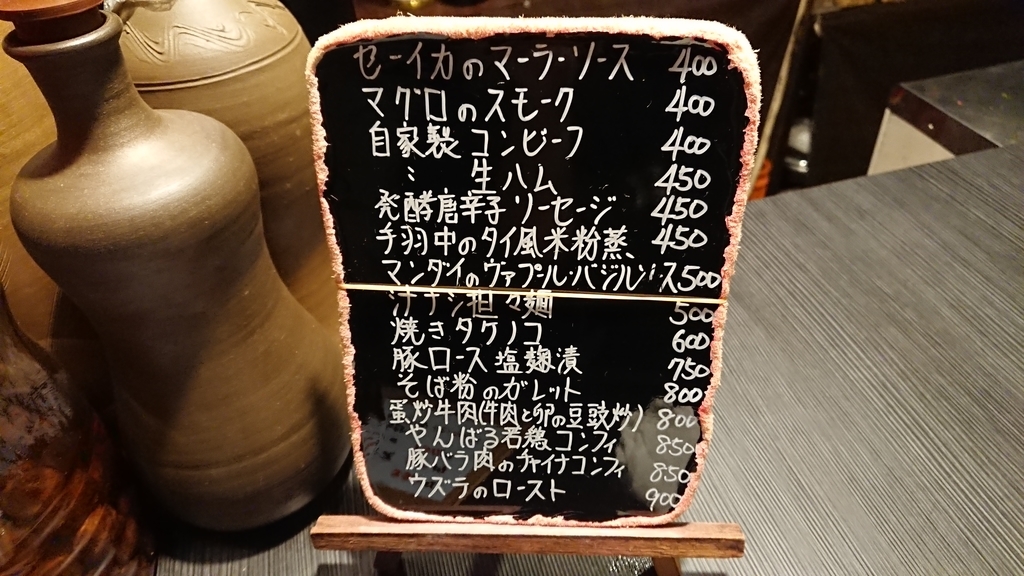 セーイカのマーラーソース 400
マグロのスモーク 400
自家製コンビーフ 400
〃 生ハム 450
発酵唐辛子ソーセージ 450
手羽中のタイ風米粉蒸 450
マンダイのヴァプール・バジルソース 500
汁ナシ担々麺 500
焼きタケノコ 600
豚ロース塩麹漬 750
そば粉のガレット 800
蛋炒牛肉(牛肉と卵の豆豉炒) 800
やんばる若鶏コンフィ 850
豚バラ肉のチャイナコンフィ 850
ウズラのロースト 900